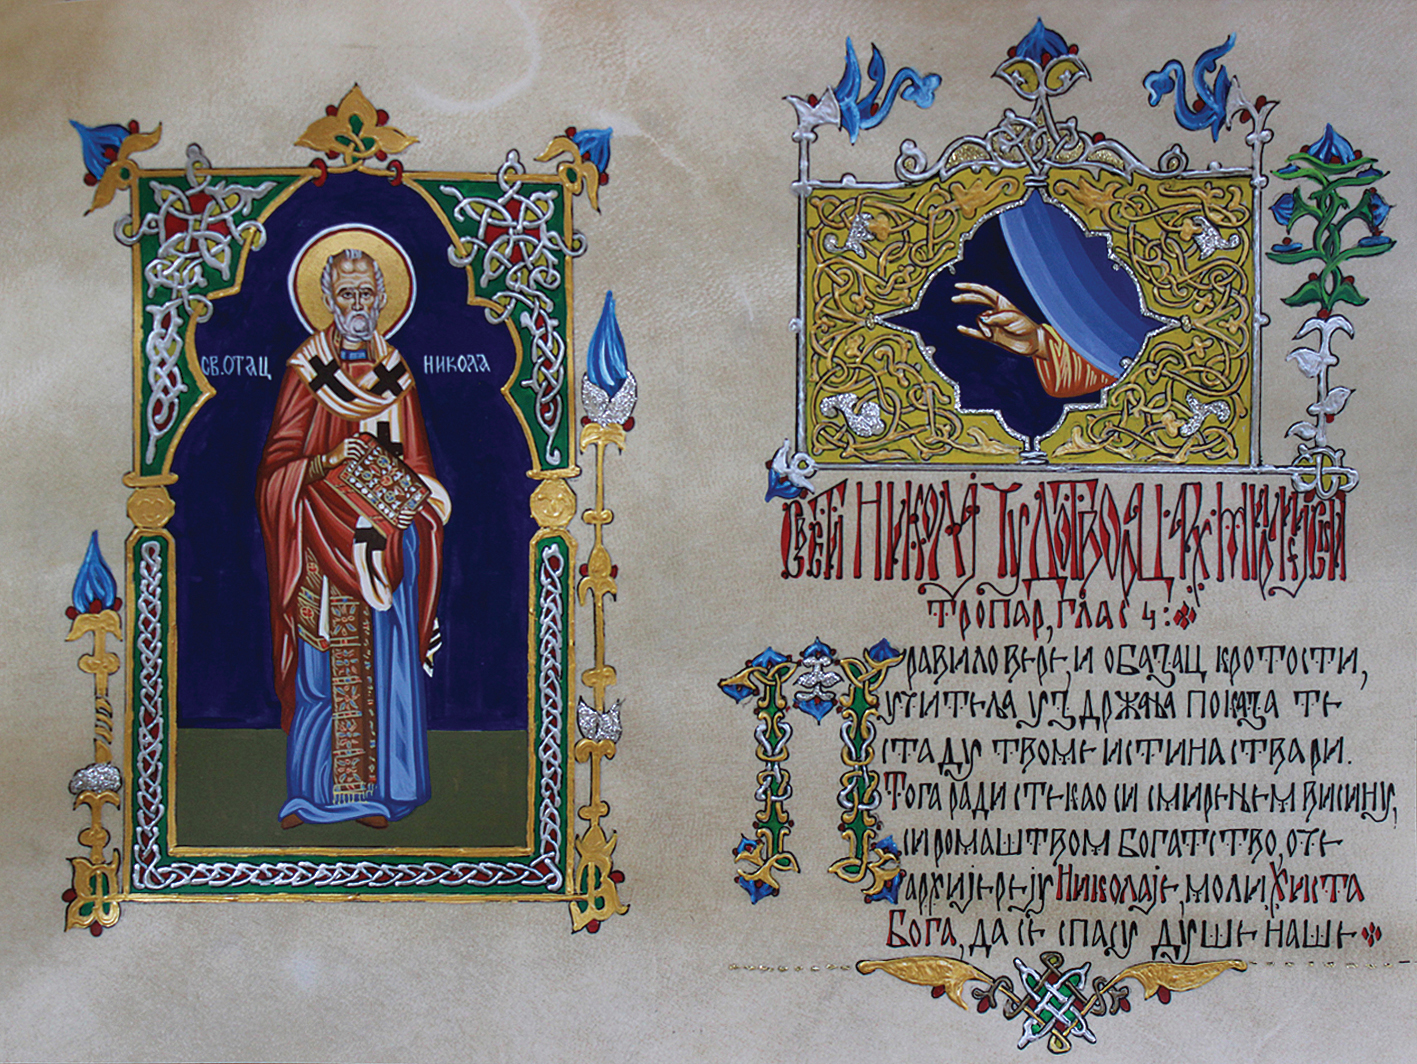 СВ. ОТАЦ НИКОЛА
СВЕТИ НИКОЛАЈ ЧУДОТВОРАЦ
ТРОПАР, ГЛАС 4:
ПРАВИЛО ВЕРЕ, И ОБРАЗАЦ КРОТОСТИ,
УЧИТЕЉА УЗДРЖАЊА ПОКАЗА ТЕ
СТАДУ ТВОМЕ ИСТИНА СТВАРИ.
ТОГА РАДИ СТЕКАО СИ СМИРЕЊЕМ ВИСИНУ,
СИРОМАШТВОМ БОГАТСТВО, ОЧЕ
АРХИЈЕРЕЈУ НИКОЛАЈЕ, МОЛИ ХРИСТА
БОГА, ДА СЕ СПАСУ ДУШЕ НАШЕ